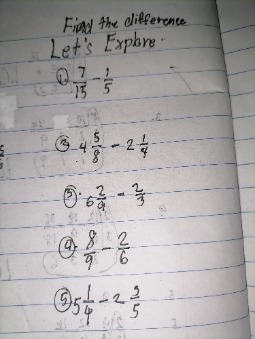 Find the difference
Let's Explore.
① 7/15 - 1/5
② 4 5/8 - 2 1/4
③ 6 2/9 - 2/3
④ 8/9 - 2/6
⑤ 5 1/4 - 2 3/5